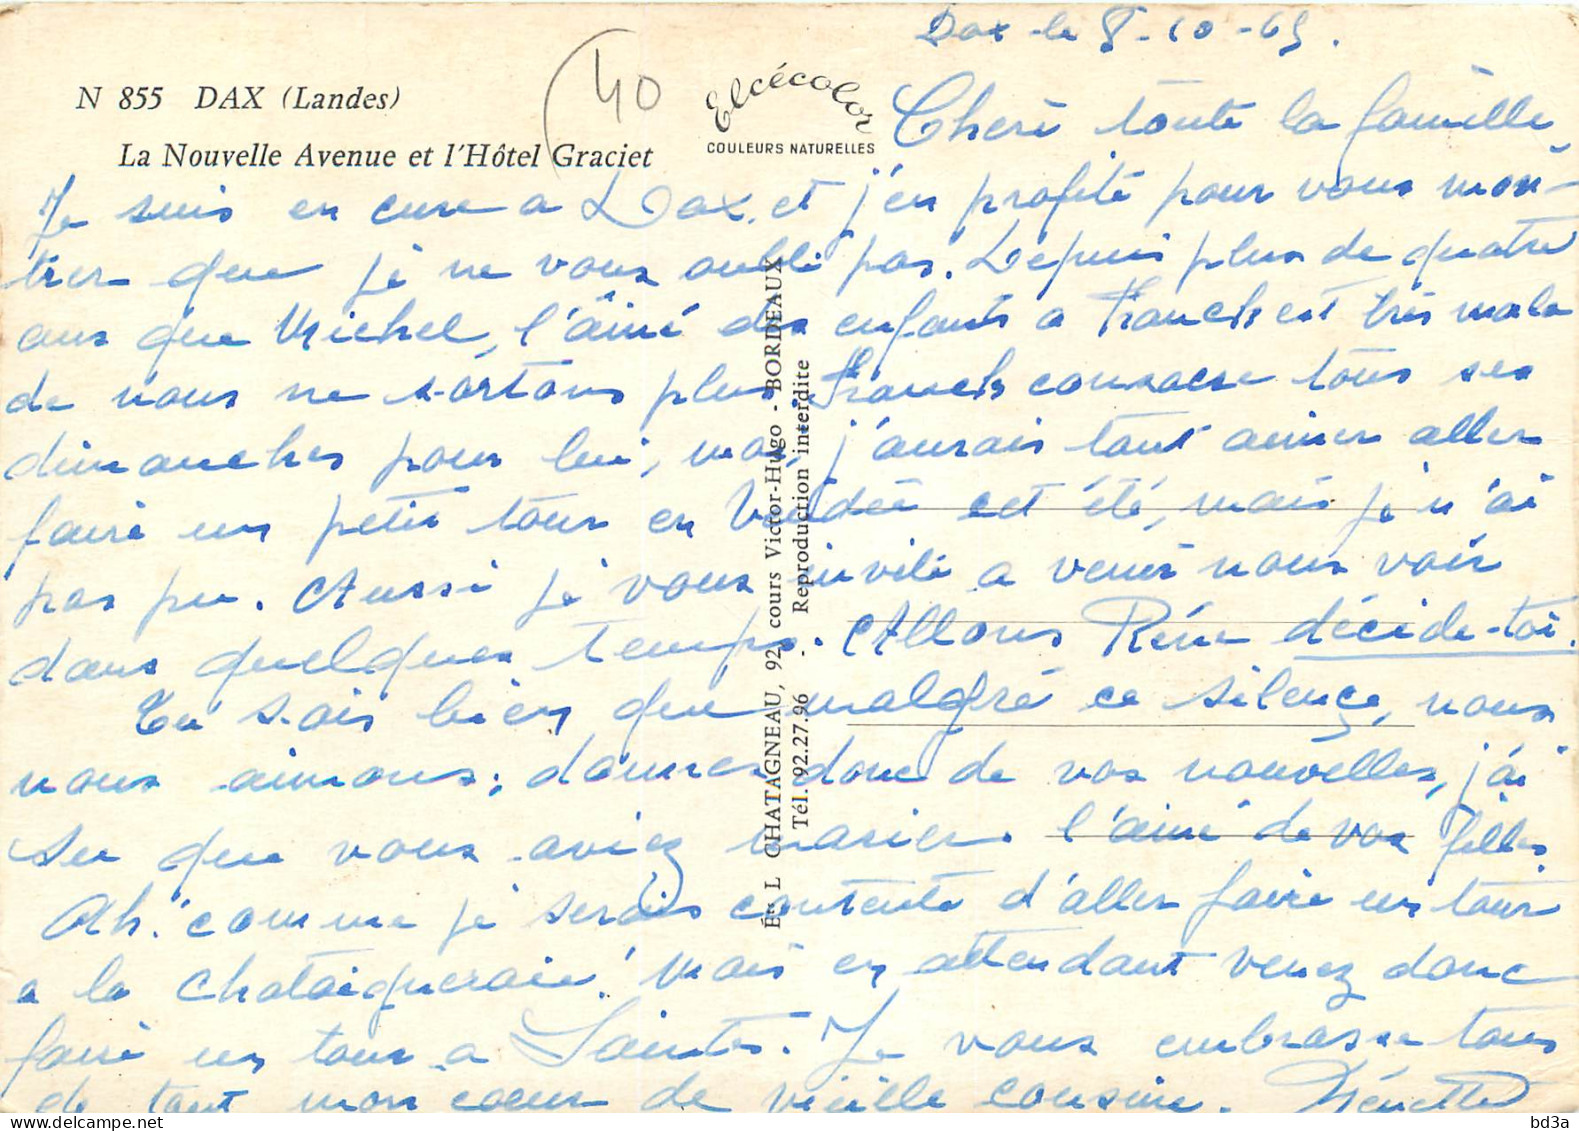 Dax le 8-10-65.
N 855 DAX (Landes)
40
Elcécolor
COULEURS NATURELLES
La Nouvelle Avenue et l'Hôtel Graciet
Cheré touté la famille,
Je suis en cure a Dax, et j'en profité pour vous mon-
trer que jé ne vous oubli pas. Depuis plus de quatre
ans que Michel, l'âiné des enfants a Franck est trés mala
de nous ne sortons plus, Franck consacre tous ses
dimanches pour lui, moi, j'aurais tant aimer aller
fairé un petit tour en Véndée cet été, mais je n'ai
pas pu. Aussi je vous invité a venir nous voir
dans quelques temps. Allons Réne décide-toi.
Tu sais bien que malgré ce silence, nous
vous aimons; donnes donc de vos nouvelles, j'ai
su que vous aviez marier l'ainé de vos filles
Ah! comme je serais contente d'aller faire un tour
a la Chataigneraie! Mais en attendant venez donc
fairé un tour a Saintes. Je vous embrasse tous
de tout mon cœur de vieille cousine.
Éts L CHATAGNEAU, 92, cours Victor-Hugo - BORDEAUX
Tél. 92.27.96 - Reproduction interdite
bd3a